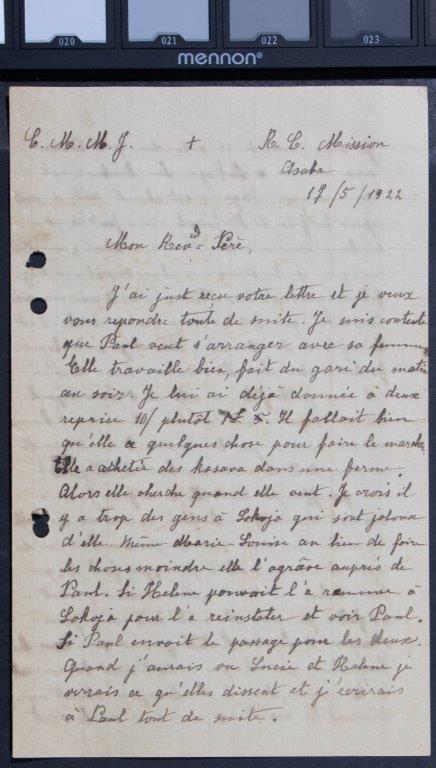 020 021 022 023
mennon®
C. M. M. J. + R. C. Mission
Asaba
17/5/1922
Mon Revd= Péré,
J'ai just reçu votre lettre et je veux
vous repondre toute de suite. Je suis contente
que Paul veut s'arranger avec sa femme
Elle travaille bien, fait du gari du matin
au soir. Je lui ai déjà donnée à deux
reprise 10/ plutôt 5. Il fallait bien
qu'elle a quelques chose pour faire le marché.
Elle a acheté des kasava dans une ferme.
Alors elle cherche quand elle veut. Je crois il
y a trop des gens à Lokoja qui sont jaloux
d'elle. Même Marie-Louise au lieu de faire
les choses moindre elle l'agrave auprès de
Paul. Si Helene pouvait l'a ramner à
Lokoja pour l'a reinstaler et voir Paul.
Si Paul envoit le passage pour les deux.
Quand j'aurais vu Lucie et Helene je
verrais ce qu'elles dissent et j'écrirais
à Paul tout de suite.